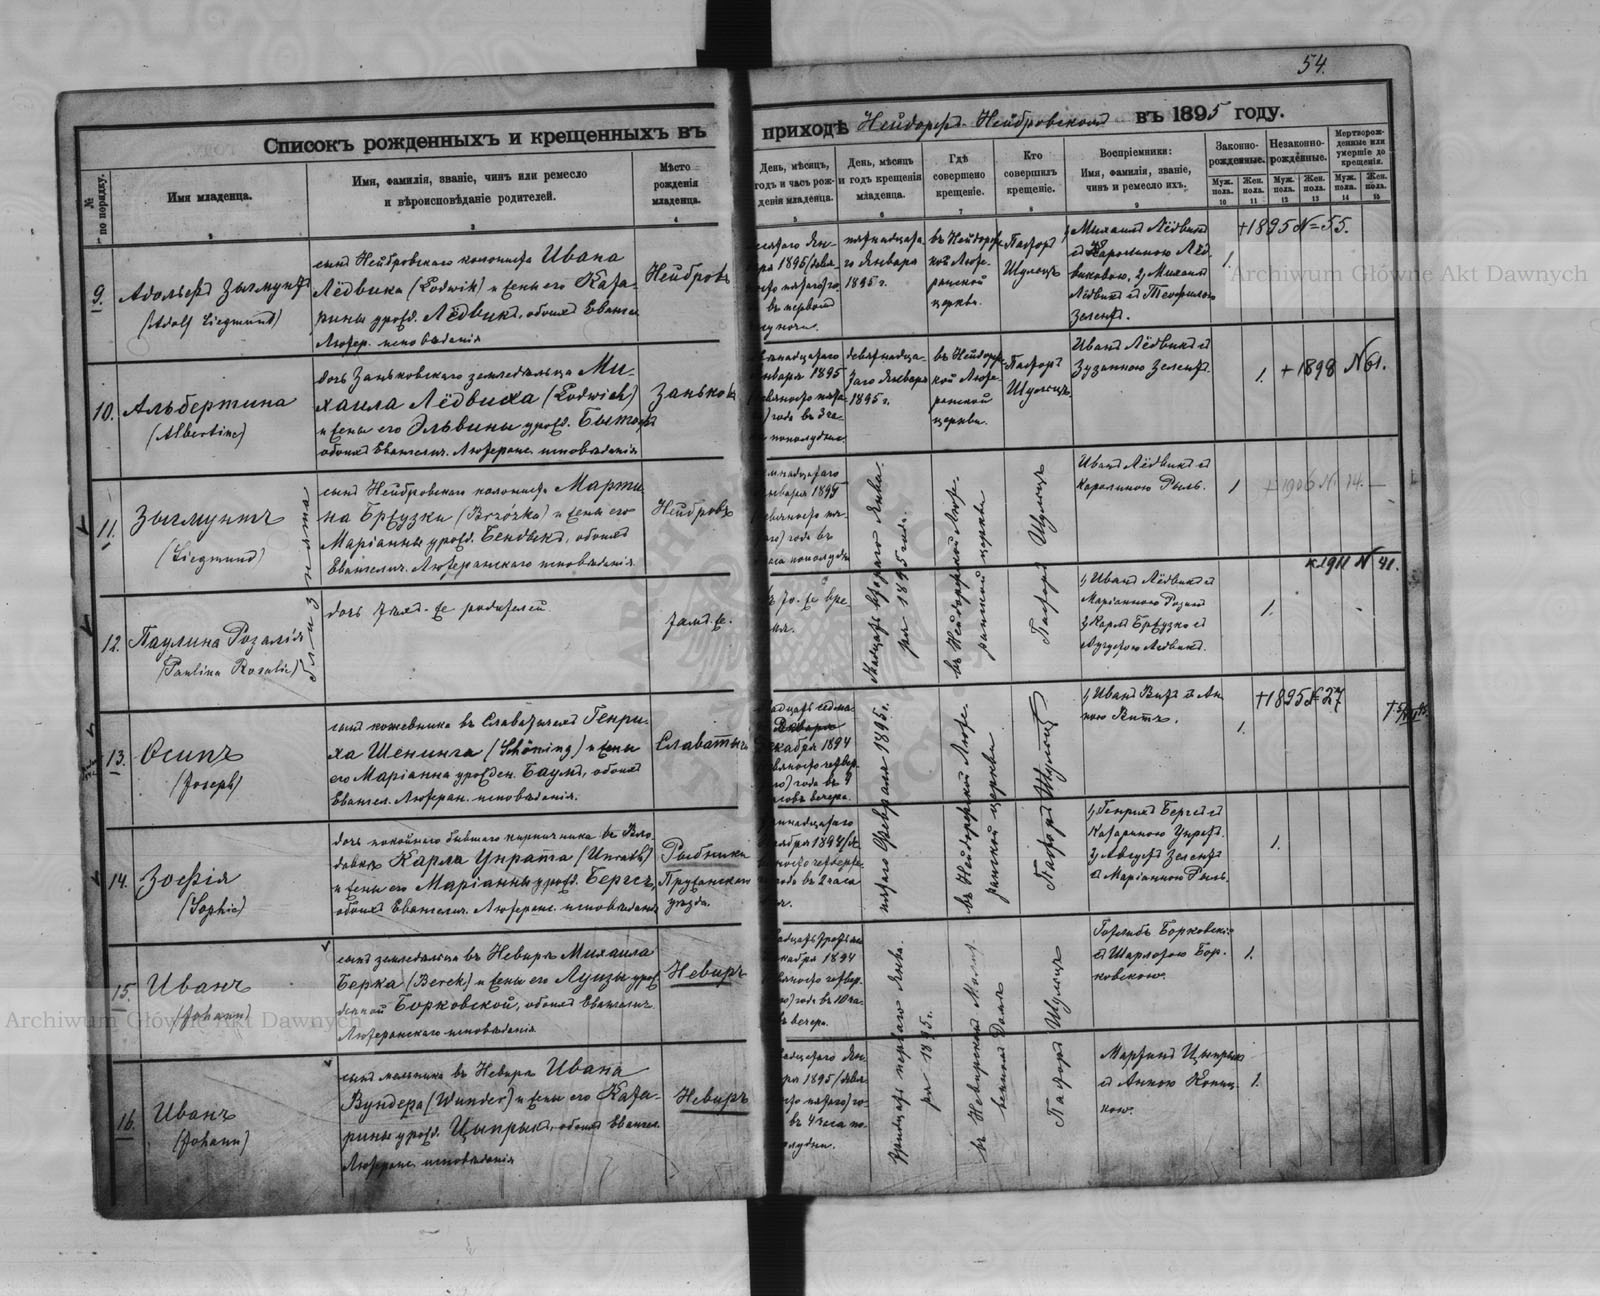 54.
Списокъ рожденныхъ и крещенныхъ въ приходѣ Нейдорфъ-Нейбровскомъ въ 1895 году.
№ по порядку.
Имя младенца.
Имя, фамилія, званіе, чинъ или ремесло
и вѣроисповѣданіе родителей.
Мѣсто
рожденія
младенца.
День, мѣсяцъ,
годъ и часъ рож-
денія младенца.
День, мѣсяцъ
и годъ крещенія
младенца.
Гдѣ
совершено
крещеніе.
Кто
совершилъ
крещеніе.
Воспріемники:
Имя, фамилія, званіе,
чинъ и ремесло ихъ.
Законно-
рожденные.
Незаконно-
рожденные.
Мертворож-
денные или
умершіе до
крещенія.
Муж. пола.
Жен. пола.
Муж. пола.
Жен. пола.
Муж. пола.
Жен. пола.
1 2 3 4 5 6 7 8 9 10 11 12 13 14 15
9.
Адольфъ Зыгмунтъ
(Adolf Siegmund)
сынъ Нейбровскаго колониста Ивана
Лёдвика (Lodwik) и жены его Ката-
рины урожд. Лёдвикъ, обоихъ Еванге.
Лютер. исповѣданія
Нейбровъ
ря 1895
въ первомъ
пятнадцата-
го Января
1895 г.
въ Нейдорфс-
кой Люте-
ранской
церкви.
Пасторъ
Шульцъ
1, Михаилъ Лёдвикъ
съ Каролиною Лёд-
виковою, 2, Михаилъ
Лёдвикъ съ Теофилою
Зелентъ.
1.
+1895 №=55.
10.
Альбертина
(Albertine)
дочь Заньковскаго земледѣльца Ми-
хаила Лёдвика (Lodwich)
и жены его Эльвины урожд.
обоихъ Евангелич. Лютеранс. исповѣданія
Заньковъ
Января 1895
годъ въ 3 ча-
пополудни
девятнадца-
таго Января
1895 г.
въ Нейдорфс-
кой Люте-
ранской
церкви.
Пасторъ
Шульцъ
Иванъ Лёдвикъ съ
Зузанною Зелентъ.
1.
+ 1898 № 61.
близнята
11.
Зыгмунтъ
(Siegmund)
сынъ Нейбровскаго колониста Марти-
на Бржузки (Brzózka) и жены его
Маріанны урожд. Бендыкъ, обоихъ
Евангелич. Лютеранскаго исповѣданія
Нейбровъ
Января 1895
годъ въ
часа пополудн
Двадцать втораго Янва-
ря 1895 года.
въ Нейдорфской Люте-
ранской церкви
Пасторъ Шульцъ
Иванъ Лёдвикъ съ
Каролиною Рыль.
1
+1906 №. 14.
12.
Паулина Розалія
(Paulina Rosalie)
дочь тѣхъ-же родителей.
тамъ-же.
то-же вре-
мя.
1, Иванъ Лёдвикъ съ
Маріанною
2, Карлъ Бржузка съ
Лёдвикъ.
1.
1911 № 41.
13.
Осипъ
(Joseph)
сынъ кожевника въ Славатычахъ Генри-
ха Шенинга (Schöning) и жены
его Маріанна урожден. Баумъ, обоихъ
Евангел. Лютеран. исповѣданія.
Славатычи
Декабря 1894
годъ въ 9
часовъ вечера.
пятаго Февраля 1895 г.
въ Нейдорфской Люте-
ранской церкви.
Пасторъ Шульцъ
1, Иванъ Витъ съ Ан-
ною Витъ.
1.
+1895 № 27
14.
Зофія
(Sophie)
дочь покойнаго бывшаго кирпичника въ Вло-
давкѣ Карла Унрата (Unrath)
и жены его Маріанны урожд. Бергъ,
обоихъ Евангелич. Лютеранс. исповѣданія
Рыбники
Пружанскаго
уѣзда.
года въ 2 часа
1, Генрихъ Бергъ съ
Катариною Унратъ.
2, Августъ Зелентъ
съ Маріанною Рыль.
1.
15.
Иванъ
(Johann)
сынъ земледѣльца въ Невиръ Михаила
Берка (Berck) и жены его Луизы урож-
денной Борковской, обоихъ Евангелич.
Лютеранскаго исповѣданія
Невиръ
декабря 1894
годъ въ 10 ча-
въ вечера.
Тридцать перваго Янва-
ря 1895 г.
въ Невирскомъ Молит-
венномъ Домѣ
Пасторъ Шульцъ
Готлибъ Борковскій
съ Шарлотою Бор-
ковскою.
1.
16.
Иванъ
(Johann)
сынъ мельника въ Невиръ Ивана
Вундера (Wunder) и жены его Ката-
рины урожд. Цыпрыкъ, обоихъ Евангел.
Лютеранс. исповѣданія
Невиръ
ря 1895
въ 4 часа по-
полудни.
Мартинъ Цыпрыкъ
съ Анною
1.
Archiwum Główne Akt Dawnych
Archiwum Główne Akt Dawnych